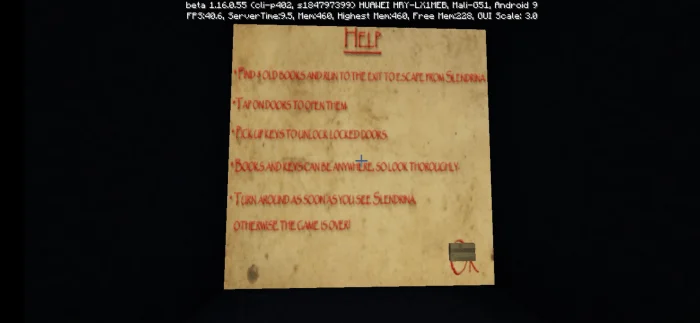 beta 1.16.0.55 (oli-p402, s184797399) HUAWEI HRY-LX1MEB, Mali-G51, Android 9
FPS:40.6, ServerTime:9.5, Mem:460, Highest Mem:460, Free Mem:228, GUI Scale: 3.0
HELP
*FIND 4 OLD BOOKS AND RUN TO THE EXIT TO ESCAPE FROM SLENDRINA
*TAP ON DOORS TO OPEN THEM
*PICK UP KEYS TO UNLOCK LOCKED DOORS.
*BOOKS AND KEYS CAN BE ANYWHERE, SO LOOK THOROUGHLY
*TURN AROUND AS SOON AS YOU SEE SLENDRINA.
OTHERWISE THE GAME IS OVER!
OK